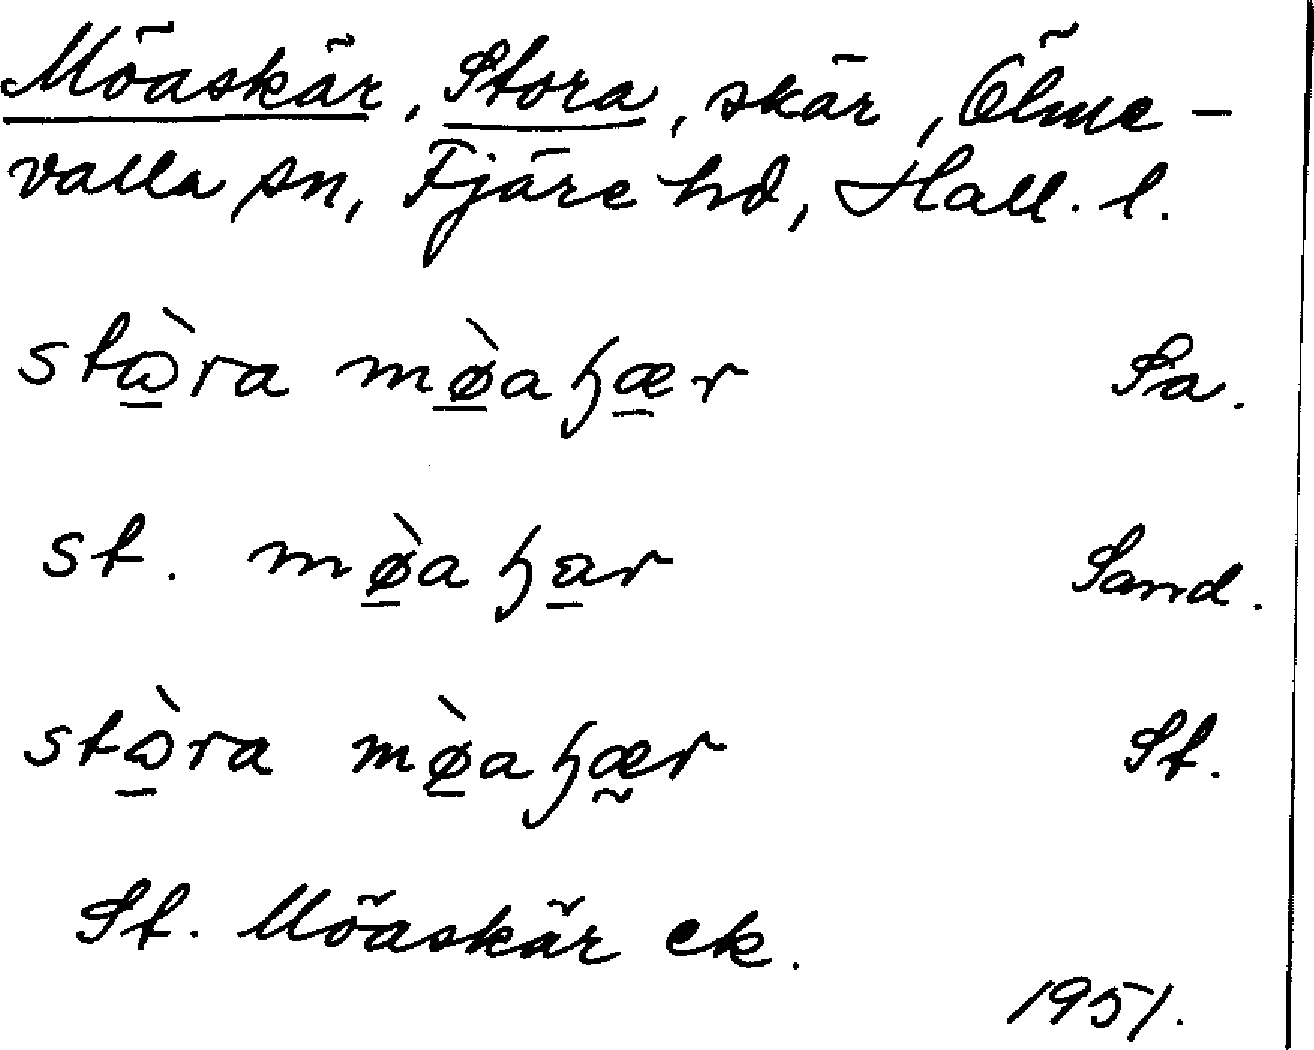 Möaskär, Stora, skär, Ölme-
valla sn, Fjäre hd, Hall. l.
stɷ̀ra mø̀aɧær Sa.
st. mø̀aɧar Sand.
stɷ̀ra mø̀aɧær St.
St. Möaskär ek.
1951.